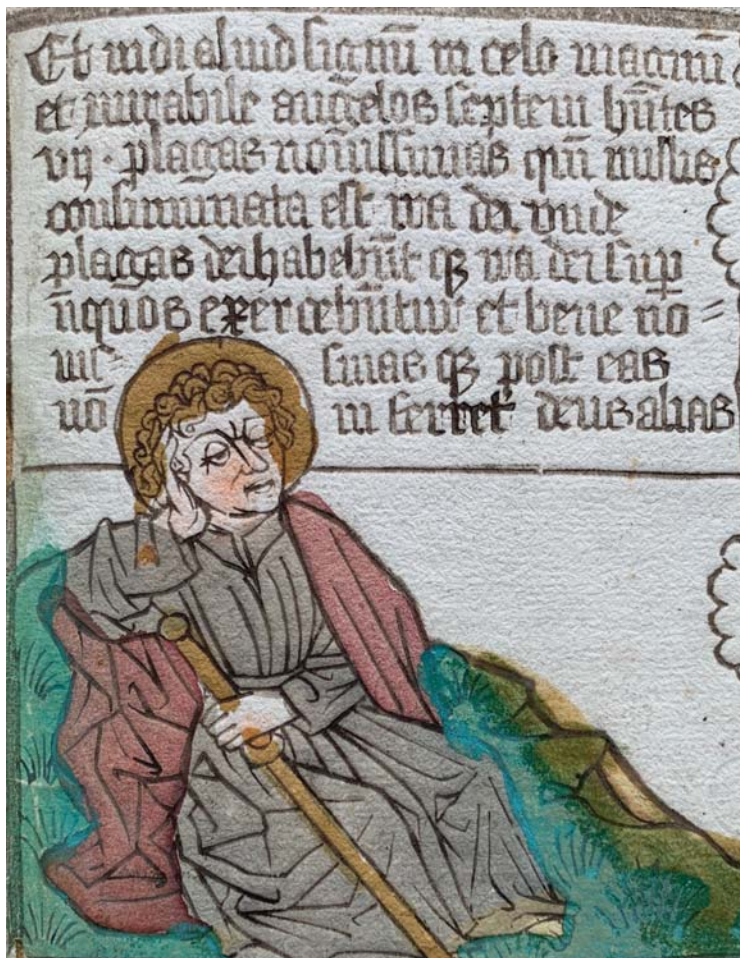 Et vidi aliud signū in celo magnū
et mirabile angelos septem hn̄tes
vij · plagas novissimas qm̄ in illis
consummata est ira dei unde
plagas dei habebūt qꝫ ira dei sup̄
exercebūtur et bene no =
vis= simas qꝫ post eas
nō in ferret deus alias